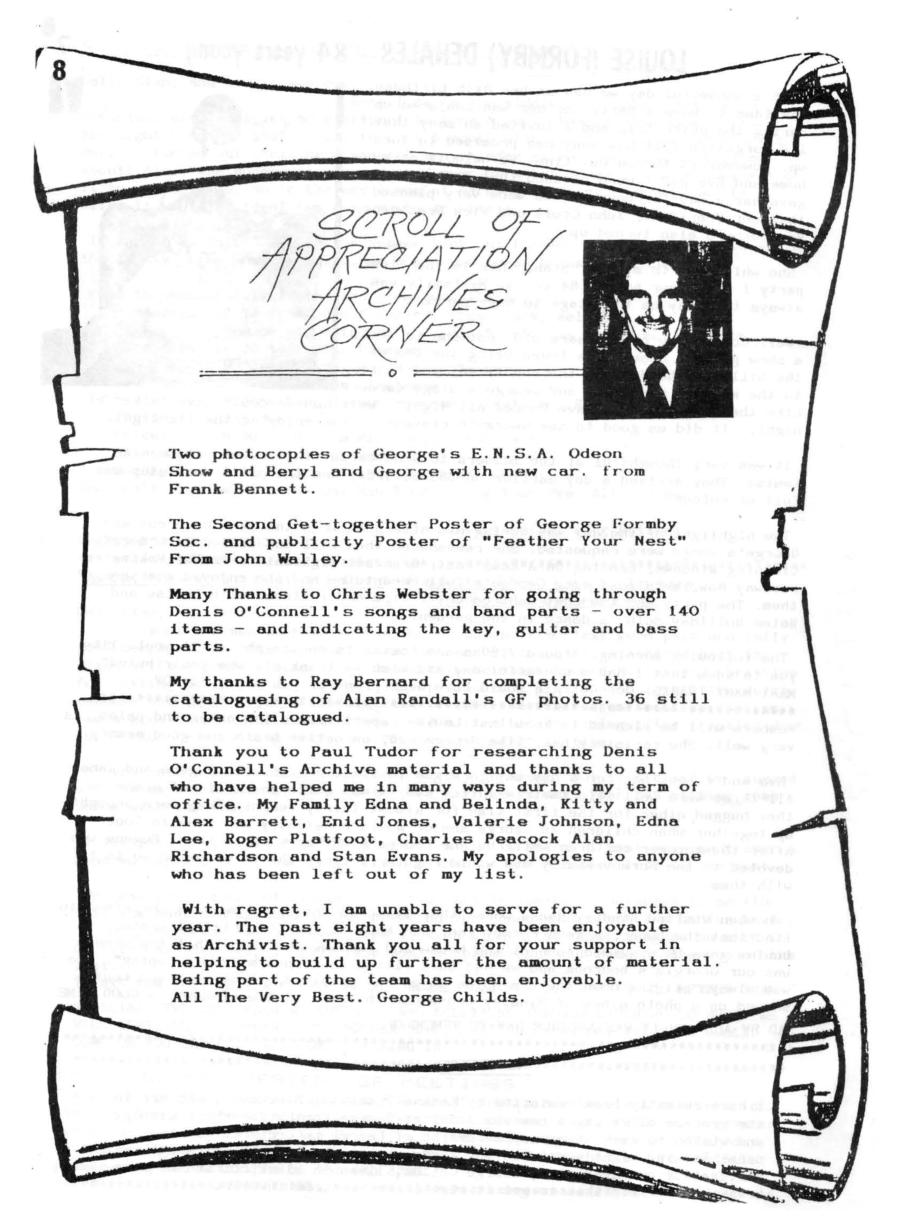 8
SCROLL OF
APPRECIATION
ARCHIVES
CORNER
Two photocopies of George's E.N.S.A. Odeon
Show and Beryl and George with new car. from
Frank Bennett.
The Second Get-together Poster of George Formby
Soc. and publicity Poster of "Feather Your Nest"
From John Walley.
Many Thanks to Chris Webster for going through
Denis O'Connell's songs and band parts - over 140
items - and indicating the key, guitar and bass
parts.
My thanks to Ray Bernard for completing the
catalogueing of Alan Randall's GF photos. 36 still
to be catalogued.
Thank you to Paul Tudor for researching Denis
O'Connell's Archive material and thanks to all
who have helped me in many ways during my term of
office. My Family Edna and Belinda, Kitty and
Alex Barrett, Enid Jones, Valarie Johnson, Eddie
Lee, Roger Platfoot, Charles Peacock Ian
Richardson and Stan Evans. My apologies to anyone
who has been left out of my list.
With regret, I am unable to serve for a further
year. The past eight years have been enjoyable
as Archivist. Thank you all for your support in
helping to build up further the amount of material.
Being part of the team has been enjoyable.
All The Very Best. George Childs.